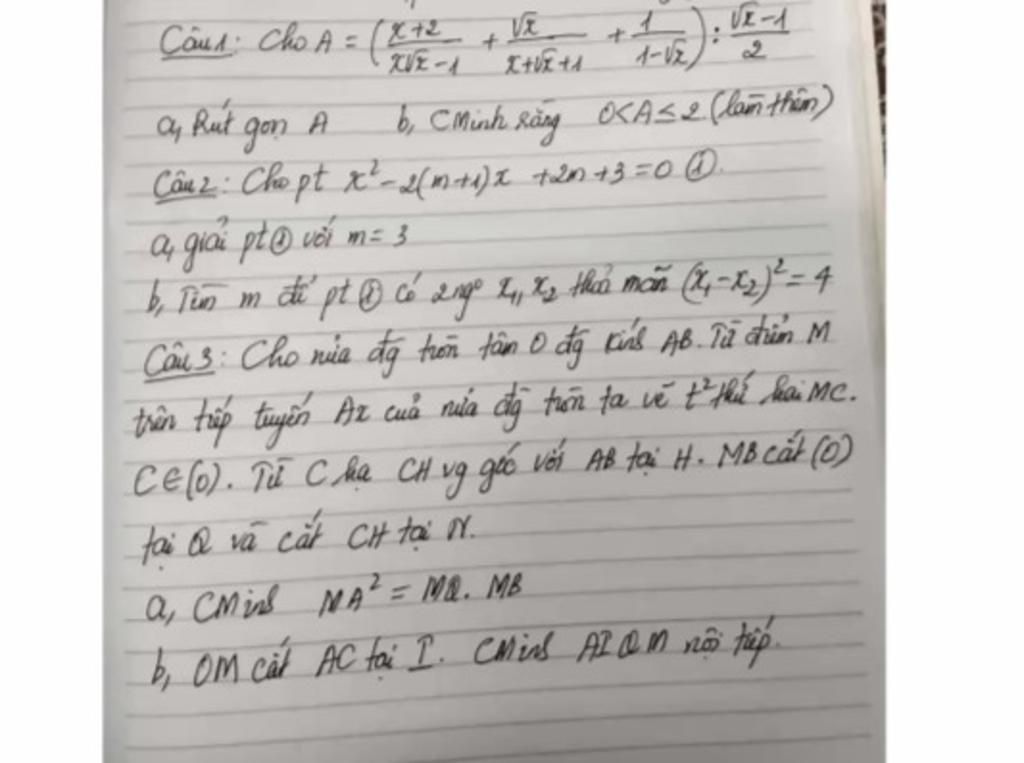 Câu 1: Cho A = (\frac{x+2}{x√x-1} + \frac{√x}{x+√x+1} + \frac{1}{1-√x}) : \frac{√x-1}{2}
a, Rút gọn A b, CMinh rằng 0<A≤2 (làm thêm)
Câu 2: Cho pt x² - 2(m+1)x + 2m+3=0 ①.
a, giải pt ① với m = 3
b, Tìm m để pt ① có 2 ngº x₁, x₂ thoả mãn (x₁-x₂)² = 4
Câu 3: Cho nửa đg tròn tâm O đg kính AB. Từ điểm M
trên tiếp tuyến Ax của nửa đg tròn ta vẽ t² thứ hai MC.
C∈(O). Từ C hạ CH vg góc với AB tại H. MB cắt (O)
tại Q và cắt CH tại N.
a, CMinh MA² = MQ. MB
b, OM cắt AC tại I. CMinh AIQM nội tiếp.